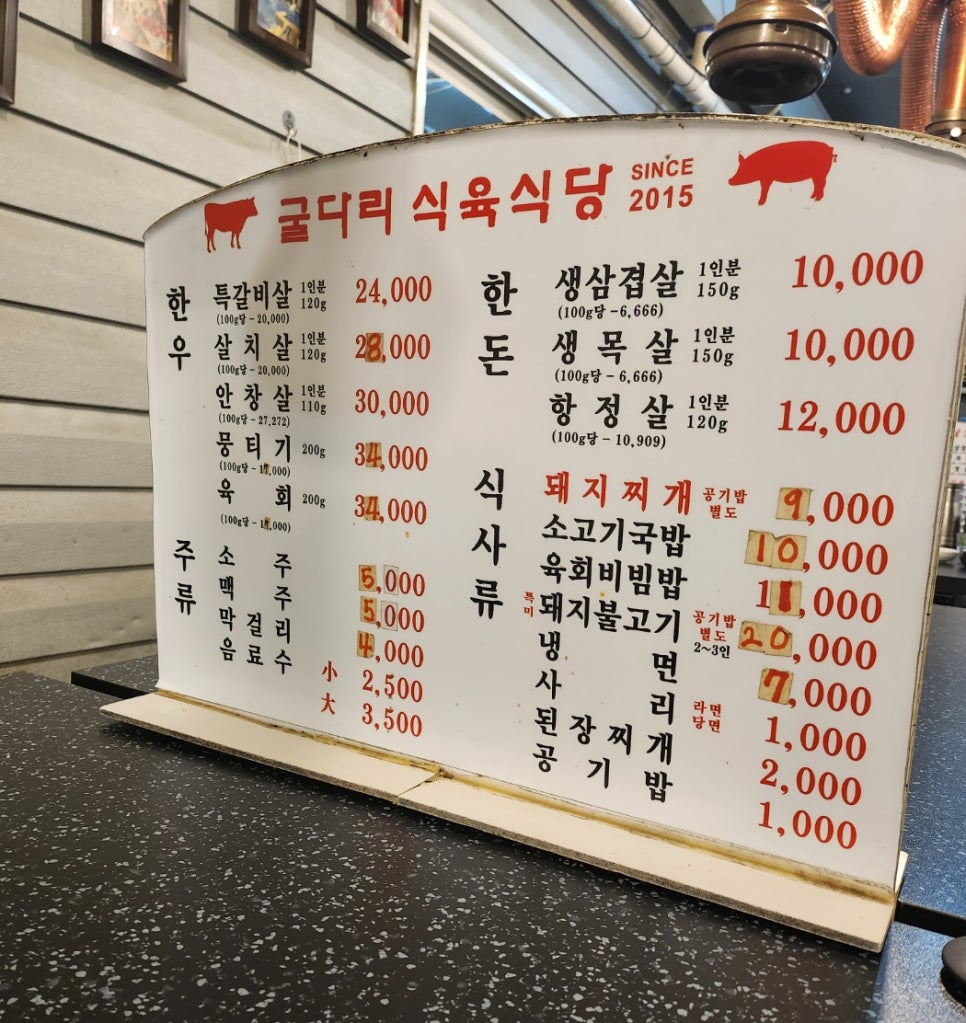 굴다리 식육식당 SINCE 2015
한우
특갈비살 1인분 120g 24,000
(100g당 - 20,000)
살치살 1인분 120g 28,000
(100g당 - 20,000)
안창살 1인분 110g 30,000
(100g당 - 27,272)
뭉티기 200g 34,000
(100g당 - 17,000)
육회 200g 34,000
(100g당 - 17,000)
주류
소주 5,000
맥주 5,000
막걸리 4,000
음료수 小 2,500
大 3,500
한돈
생삼겹살 1인분 150g 10,000
(100g당 - 6,666)
생목살 1인분 150g 10,000
(100g당 - 6,666)
항정살 1인분 120g 12,000
(100g당 - 10,909)
식사류
돼지찌개 공기밥 별도 9,000
소고기국밥 10,000
육회비빔밥 11,000
특미 돼지불고기 공기밥 별도 2~3인 20,000
냉면 7,000
사리 라면 당면 1,000
된장찌개 2,000
공기밥 1,000